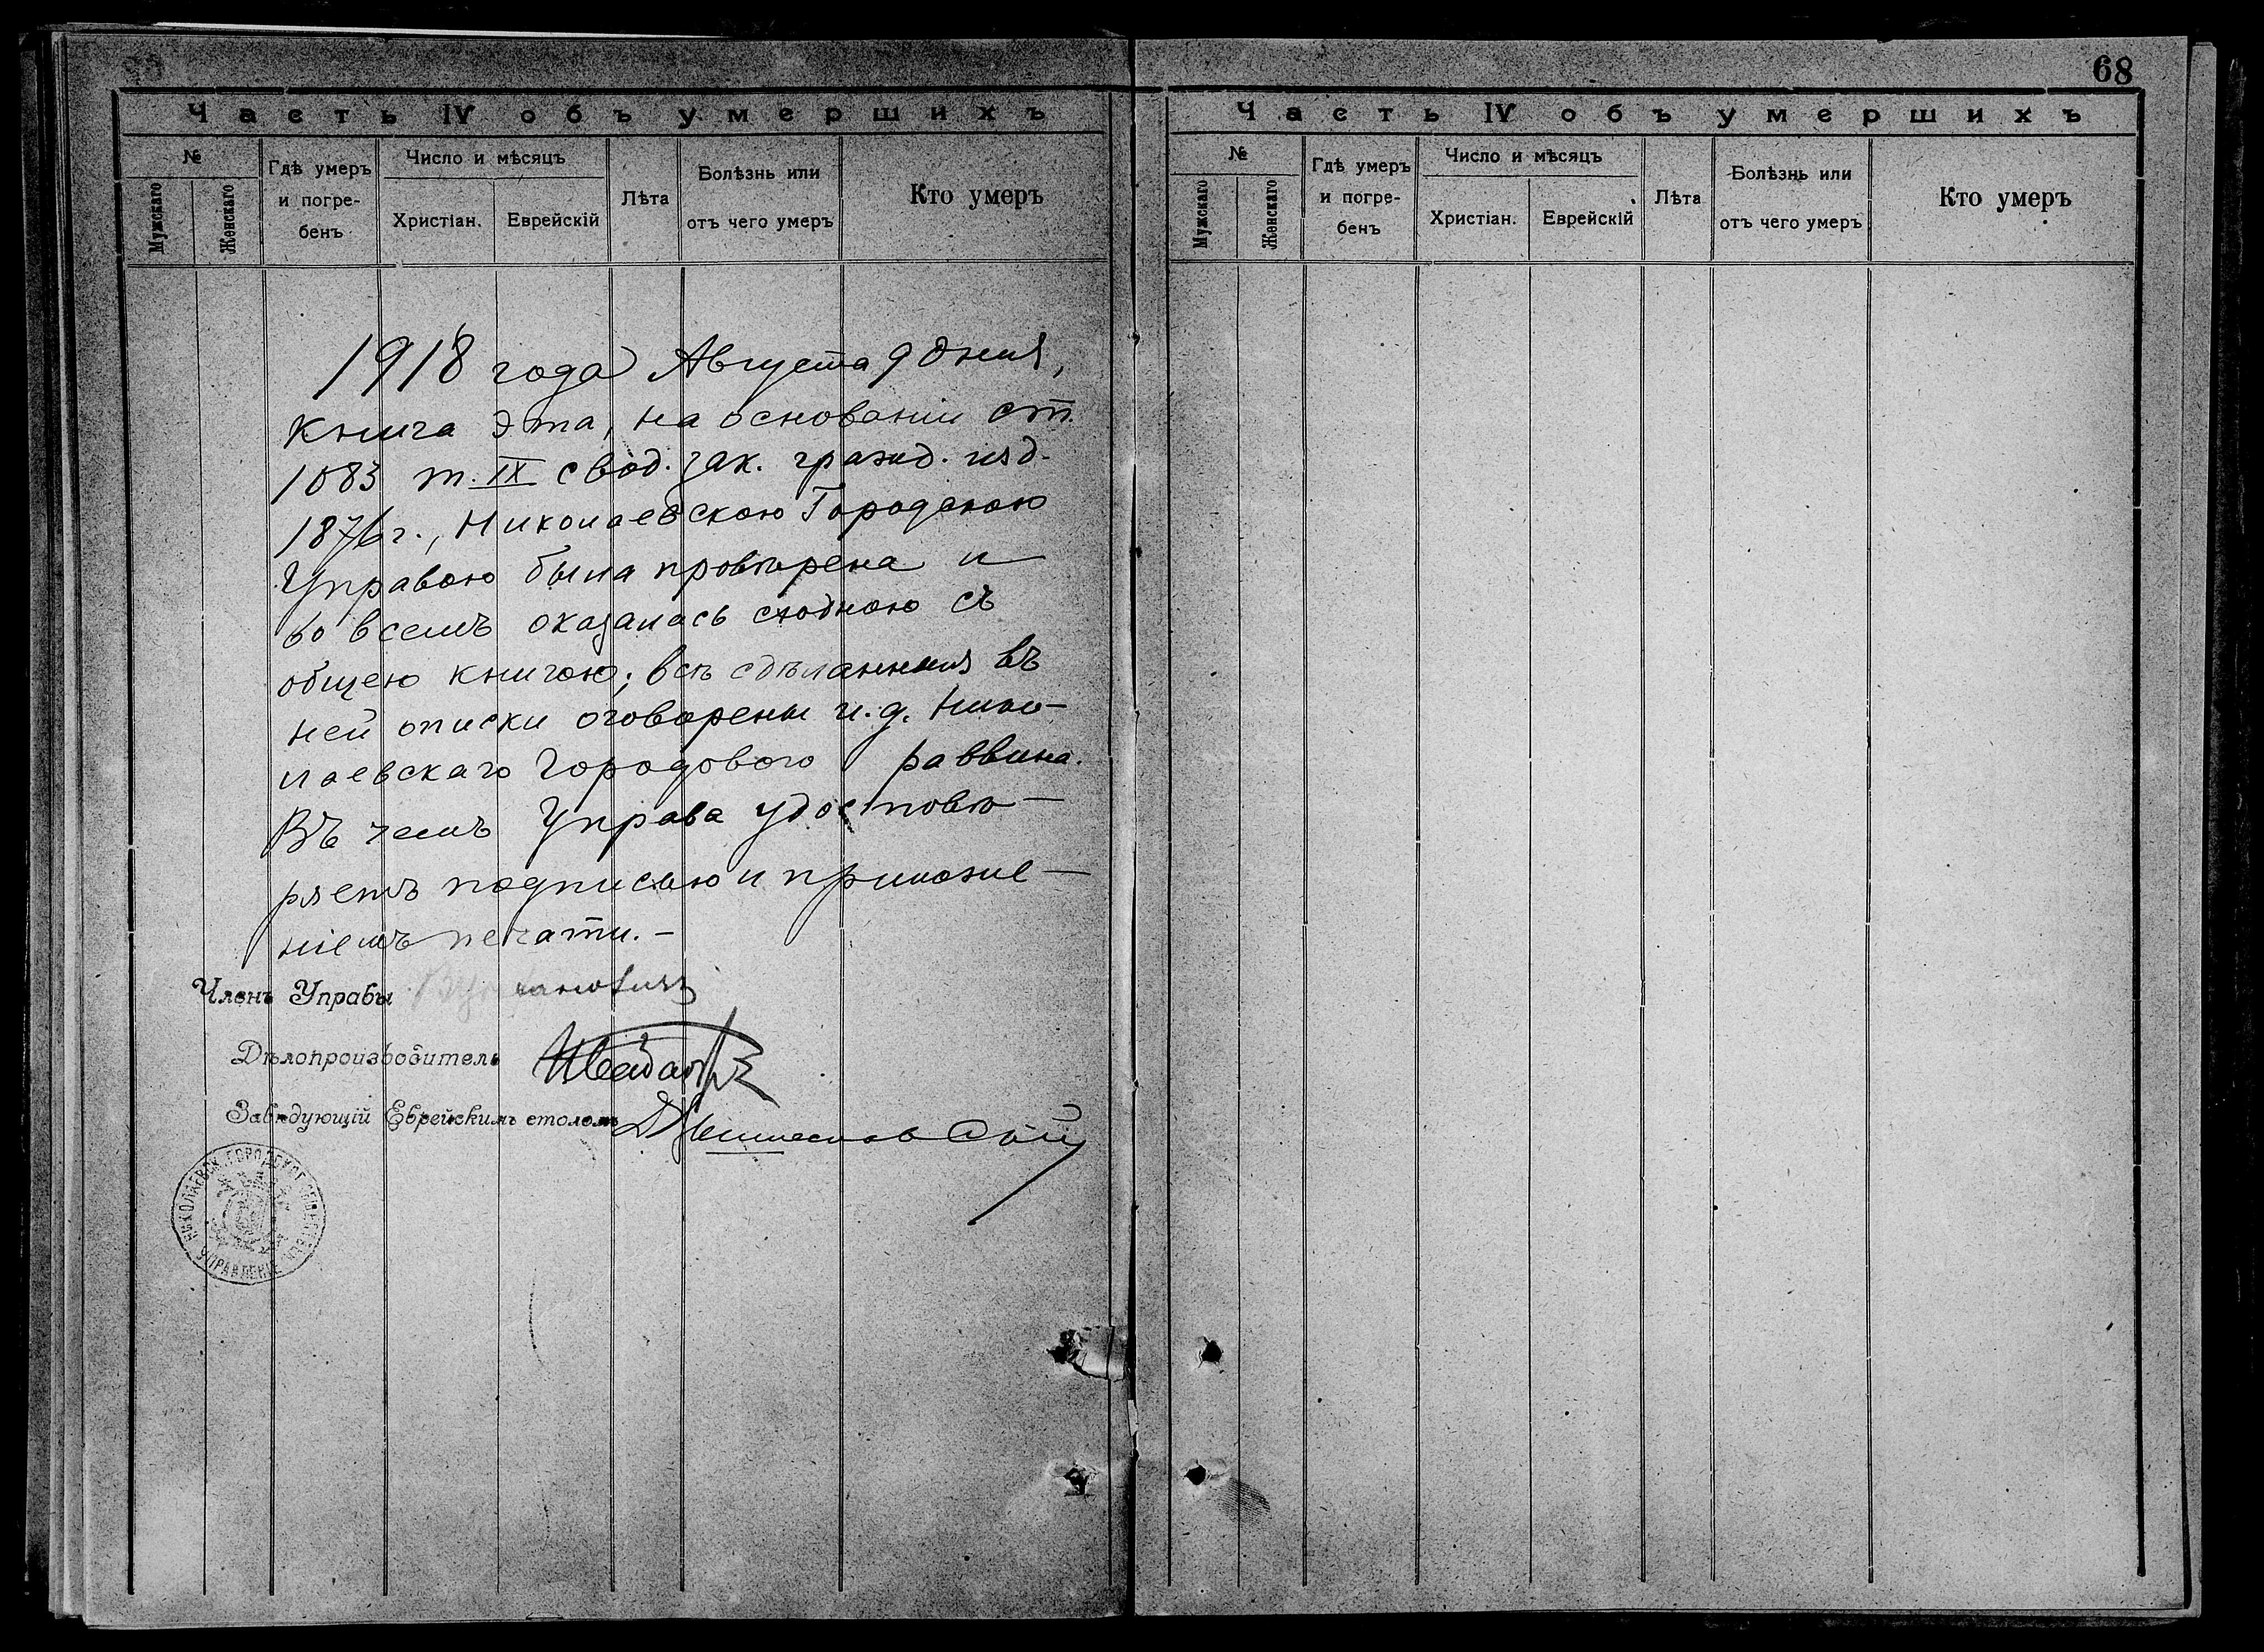 68
Часть IV объ умершихъ
№
Мужскаго
Женскаго
Гдѣ умеръ
и погре-
бенъ
Число и мѣсяцъ
Христіан.
Еврейскій
Лѣта
Болѣзнь или
отъ чего умеръ
Кто умеръ
1918 года Августа 9 дния,
Книга эта, на основаніи ст.
1083 т. IX свод. зак. гражд. изд.
1876 г., Николаевскою Городскою
Управою была провѣрена и
во всемъ оказалась сходною съ
общею книгою; всѣ сдѣланныя въ
ней описки оговорены и. д. Нико-
лаевскаго Городового раввина.
Въ чемъ Управа удостовѣ-
ряетъ подписью и приложе-
ніемъ печати. -
Членъ Управы
Дѣлопроизводитель
Завѣдующій Еврейскимъ столомъ
НИКОЛАЕВСК. ГОРОДСКОЕ
УПРАВЛЕНІЕ
Часть IV объ умершихъ
№
Мужскаго
Женскаго
Гдѣ умеръ
и погре-
бенъ
Число и мѣсяцъ
Христіан.
Еврейскій
Лѣта
Болѣзнь или
отъ чего умеръ
Кто умеръ